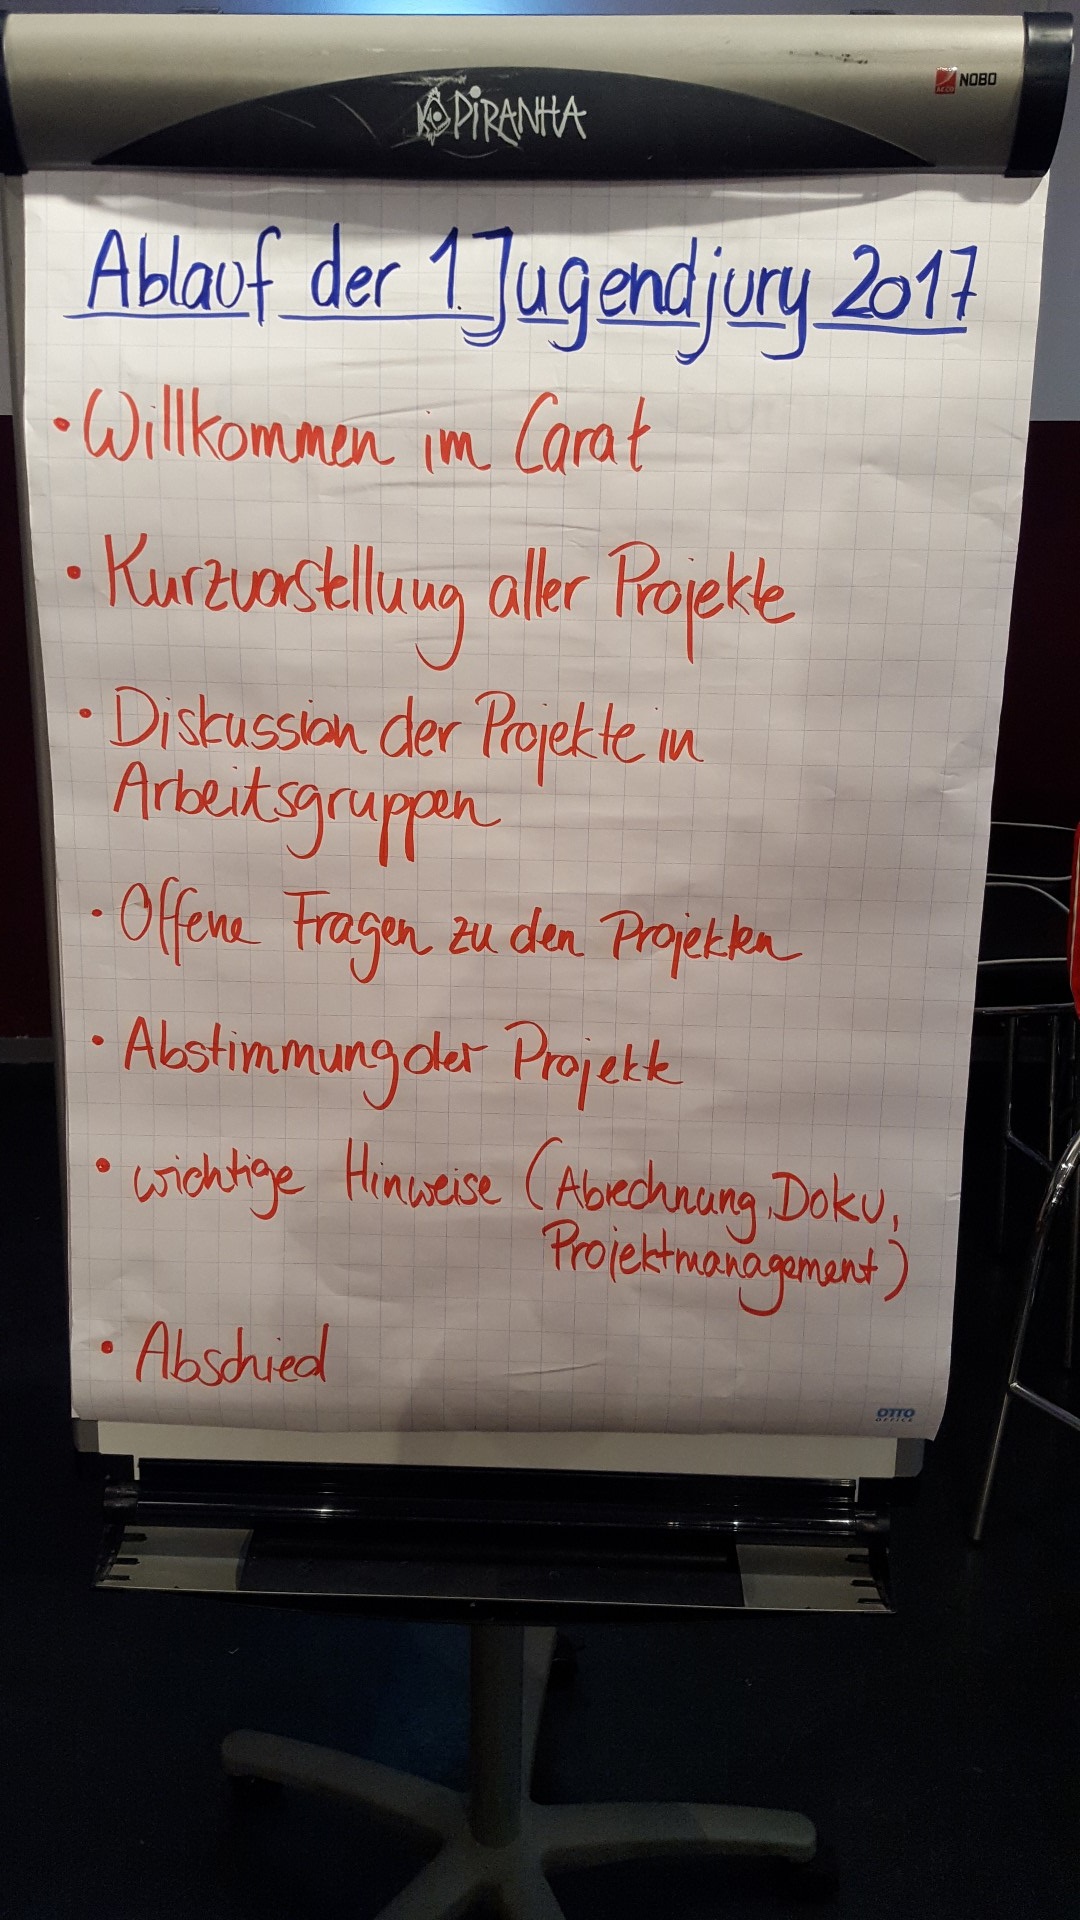 PiRANHA
ACCO NOBO
Ablauf der 1. Jugendjury 2017
• Willkommen im Carat
• Kurzvorstellung aller Projekte
• Diskussion der Projekte in
Arbeitsgruppen
• Offene Fragen zu den Projekten
• Abstimmung der Projekte
• wichtige Hinweise (Abrechnung, Doku,
Projektmanagement)
• Abschied
OTTO
OFFICE